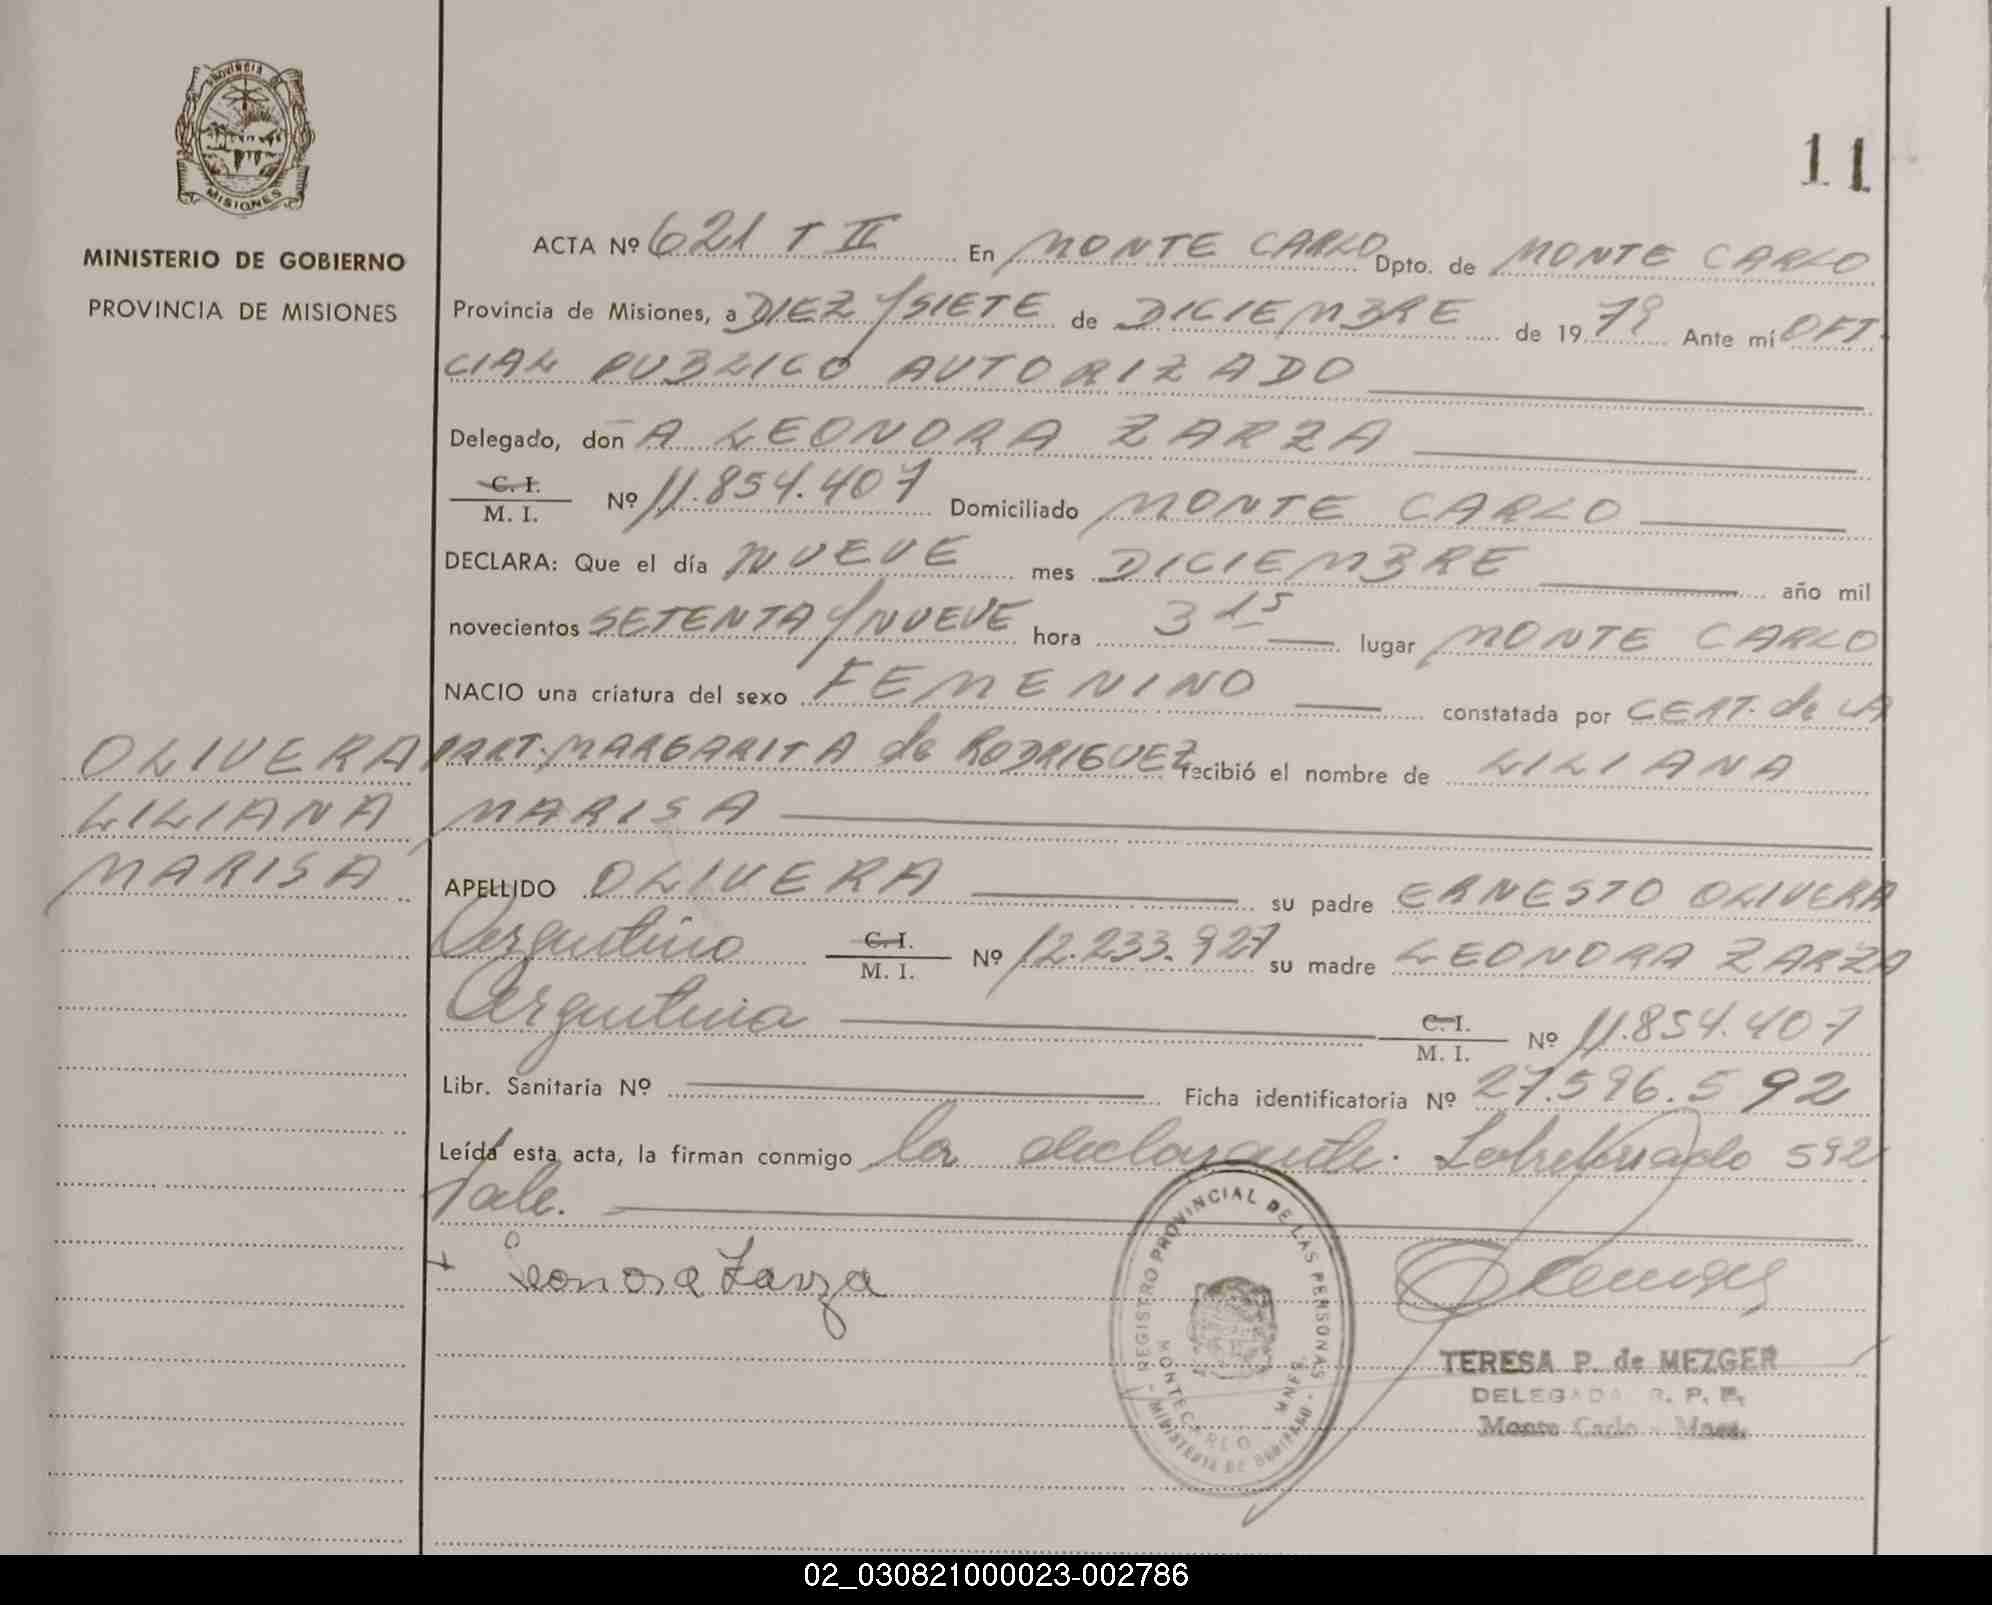 PROVINCIA
MISIONES
MINISTERIO DE GOBIERNO
PROVINCIA DE MISIONES
11
ACTA Nº 621 T II En MONTE CARLO Dpto. de MONTE CARLO
Provincia de Misiones, a DIEZ Y SIETE de DICIEMBRE de 19 79 Ante mí OFI
CIAL PUBLICO AUTORIZADO
Delegado, don A LEONORA ZARZA
C. I.
M. I. Nº 11.854.407 Domiciliado MONTE CARLO
DECLARA: Que el día NUEVE mes DICIEMBRE año mil
novecientos SETENTA Y NUEVE hora 3 15 lugar MONTE CARLO
NACIO una criatura del sexo FEMENINO constatada por CERT. de LA
PART. MARGARITA de RODRIGUEZ recibió el nombre de LILIANA
MARISA
OLIVERA
LILIANA
MARISA
APELLIDO OLIVERA su padre ERNESTO OLIVERA
Argentino C. I.
M. I. Nº 12.233.927 su madre LEONORA ZARZA
Argentina C. I.
M. I. Nº 11.854.407
Libr. Sanitaria Nº Ficha identificatoria Nº 27.596.592
Leída esta acta, la firman conmigo la declarante. Sobreborrado 592
Vale.
+ Leonora Zarza
REGISTRO PROVINCIAL DE LAS PERSONAS
MONTECARLO - MNES.
- MINISTERIO DE GOBIERNO -
TERESA P. de MEZGER
DELEGADA R. P. P.
Monte Carlo - Mnes.
02_030821000023-002786